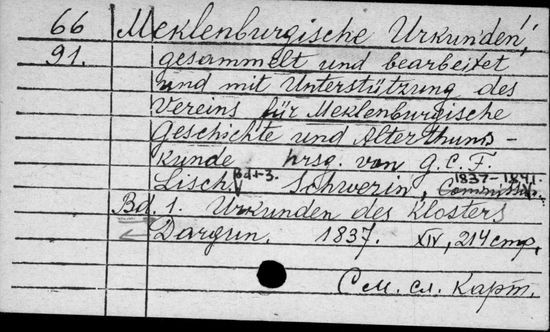 66 Meklenburgische Urkunden,
91. gesammelt und bearbeitet
und mit Unterstützung des
Vereins für Meklenburgische
Geschichte und Alterthums-
kunde hrsg. von G.C.F.
Lisch. Bd 1-3. Schwerin, 1837-1841.
Bd. 1. Urkunden des Klosters
Dargun. 1837. XIV, 214 стр,
См. сл. карт.